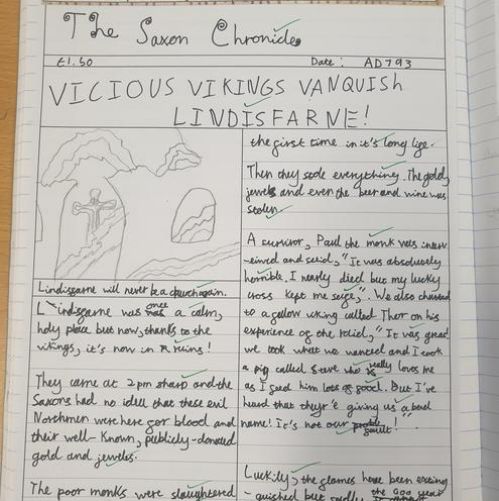 The Saxon Chronicle
£1.50
Date: AD793
VICIOUS VIKINGS VANQUISH
LINDISFARNE!
Lindisfarne will never be a church again.
Lindsfarne was once a calm,
holy place but now, thanks to the
vikings, it's now in ruins!
They came at 2 pm sharp and the
Saxons had no idea that these evil
Northmen were here for blood and
their well-known, publicly-donated
gold and jewels.
The poor monks were slaughtered
the first time in it's long life.
Then they stole everything. The gold,
jewels and even the beer and wine was
stolen.
A survivor, Paul the monk was interv-
eiwed and said, "It was absolutely
horrible. I nearly died but my lucky
cross kept me safe,". We also chatted
to a fellow viking called Thor on his
experience of the raid, "It was great
we took what we wanted and I took
a pig called Steve who really loves me
as I feed him lots of food. But I've
heard that they're giving us a bad
name! It's not our fault!"
Luckily, the flames have been exting-
uished but sadly, the 600 year